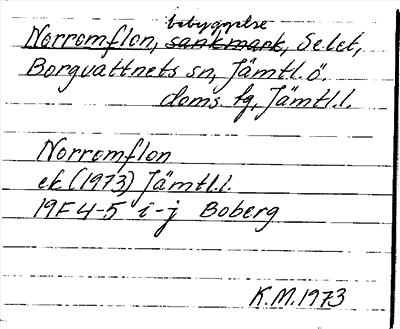 bebyggelse
Norromflon, sankmark, Selet,
Borgvattnets sn, Jämtl. ö.
doms. tg, Jämtl. l.
Norromflon
ek (1973) Jämtl. l.
19F 4-5 i-j Boberg
K.M. 1973